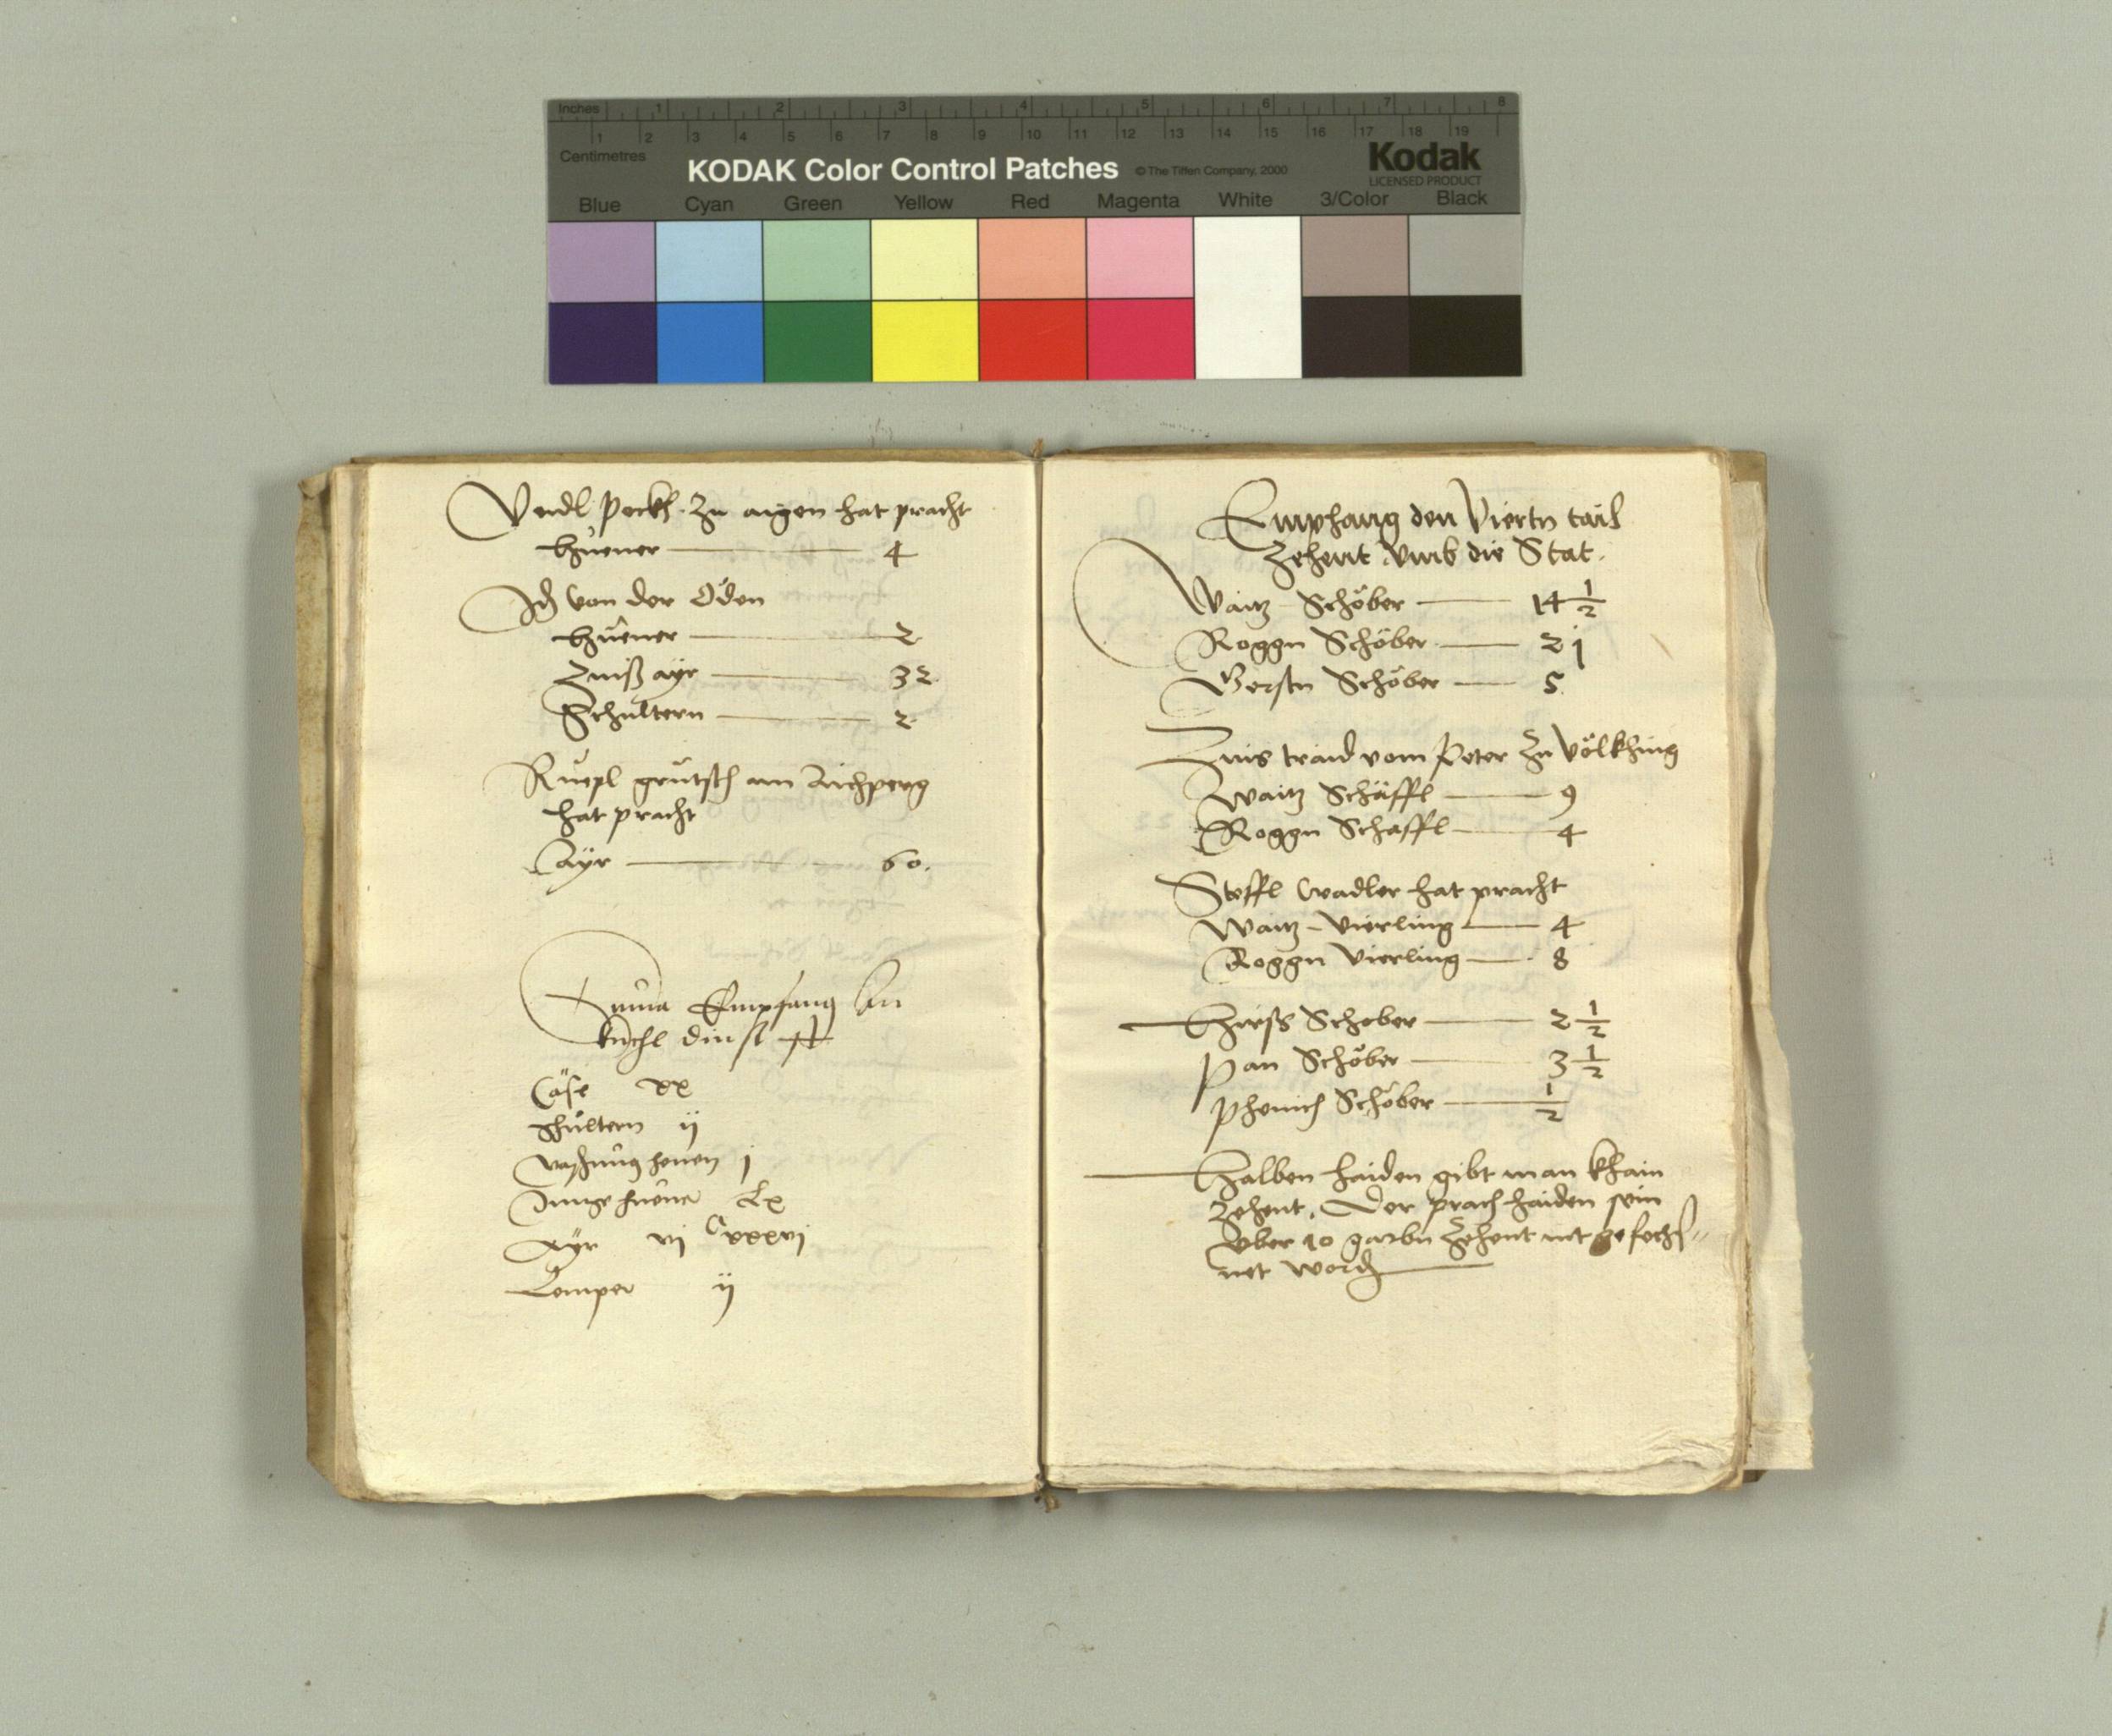 Inches 1 2 3 4 5 6 7 8
1 2 3 4 5 6 7 8 9 10 11 12 13 14 15 16 17 18 19
Centimetres
KODAK Color Control Patches © The Tiffen Company, 2000 Kodak
LICENSED PRODUCT
Blue Cyan Green Yellow Red Magenta White 3/Color Black
Veidl Peckh zu aigen hat pracht
Hüener 4
Idem von der Öden
Hüener 2
Zinß ayr 32
Schultern 2
Ruepl grütsch am Aichperg
hat pracht
Ayr 60.
Suma Empfang An
kuchl dinst
Cäse xx
Schultern ij
vaschang henen j
Junge huener Lx
Ayr vj Cxxxvj
Lemper ij
Emphang den Viertn tail
zehent umb die Stat.
Waitz Schöber 14 1/2
Roggn Schöber 21
Gerstn Schöber 5
Zins traid vom Peter zu Völkhing
Waitz Schäffl 9
Roggn Schäffl 4
Steffl Wadler hat pracht
Waitz - Vierling 4
Roggn Vierling 8
Hirß Schober 2 1/2
Pan Schöber 3 1/2
Phenich Schöber 1/2
Halben haiden gibt man khain
zehent. Der prach haiden sein
Uber 10 garbn zehent nit gefechs"
net word